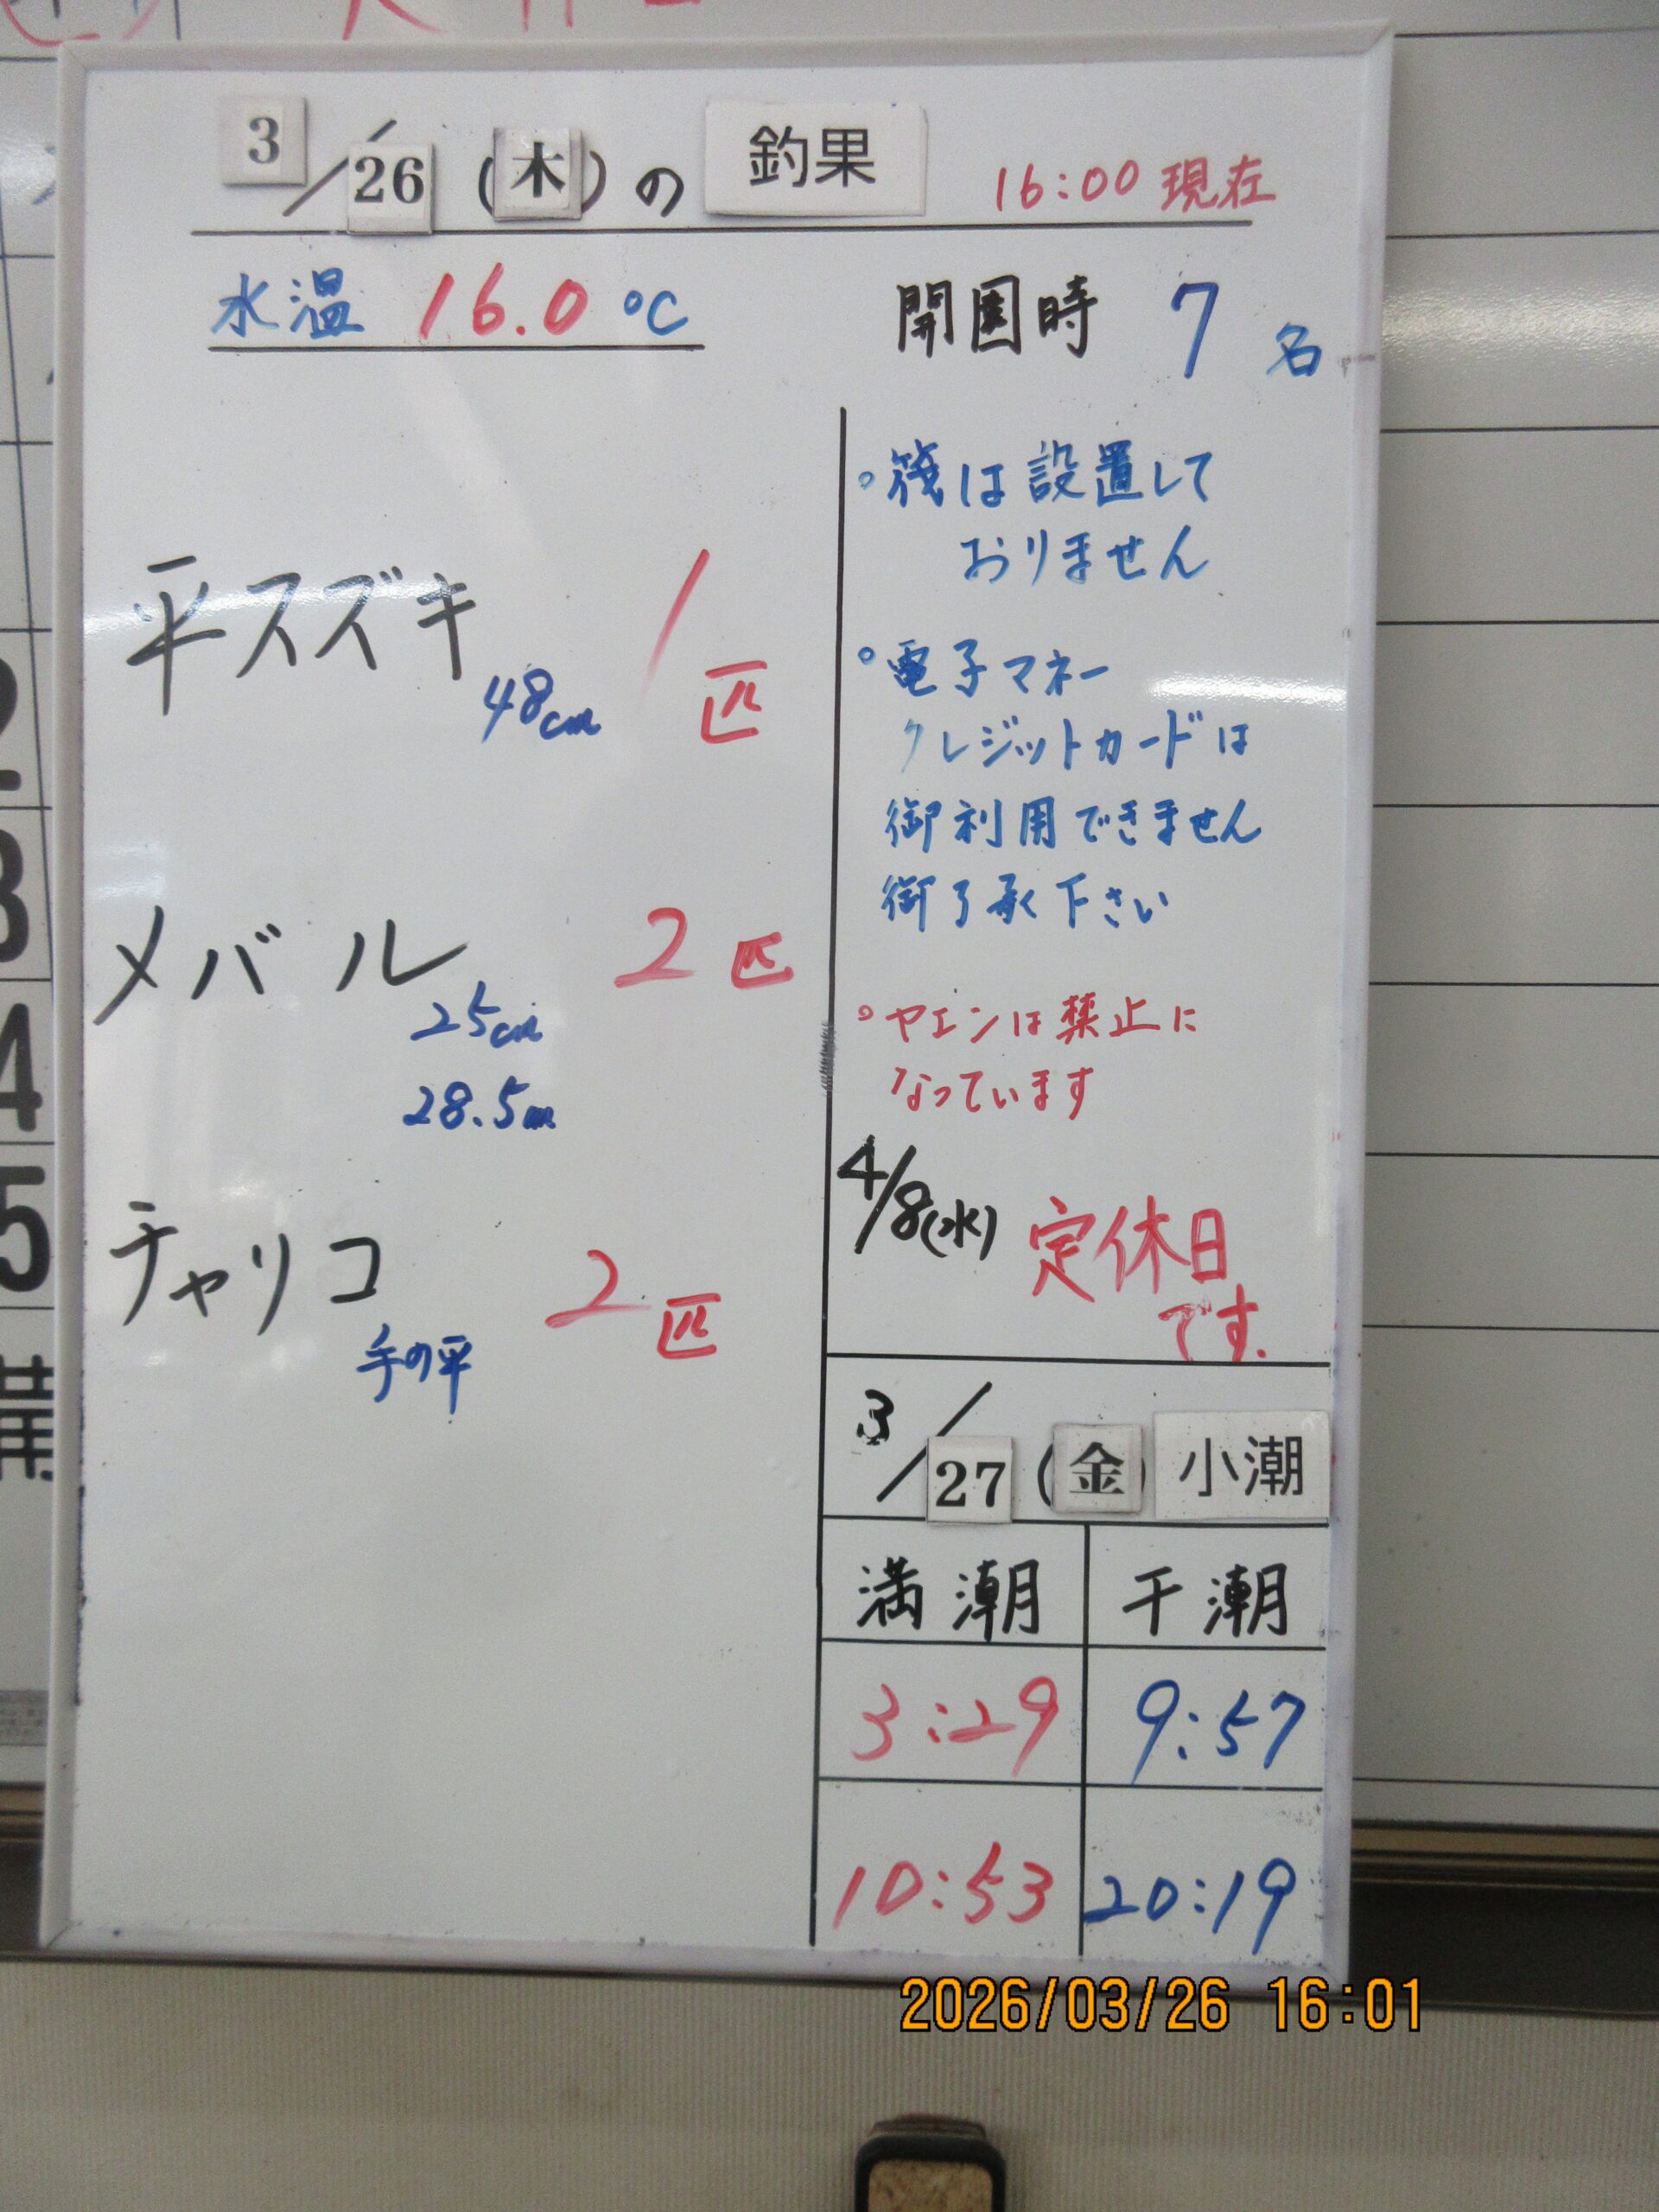 3/26(木)の 釣果 16:00 現在
水温 16.0 ℃
開園時 7 名
平スズキ 1匹
48cm
メバル 2匹
25cm
28.5cm
チャリコ 2匹
手の平
。筏は設置して
おりません
。電子マネー
クレジットカードは
御利用できません
御了承下さい
。ヤエンは禁止に
なっています
4/8(水) 定休日
です.
3/27(金) 小潮
満潮 干潮
3:29 9:57
10:53 20:19
2026/03/26 16:01
2
3
4
5